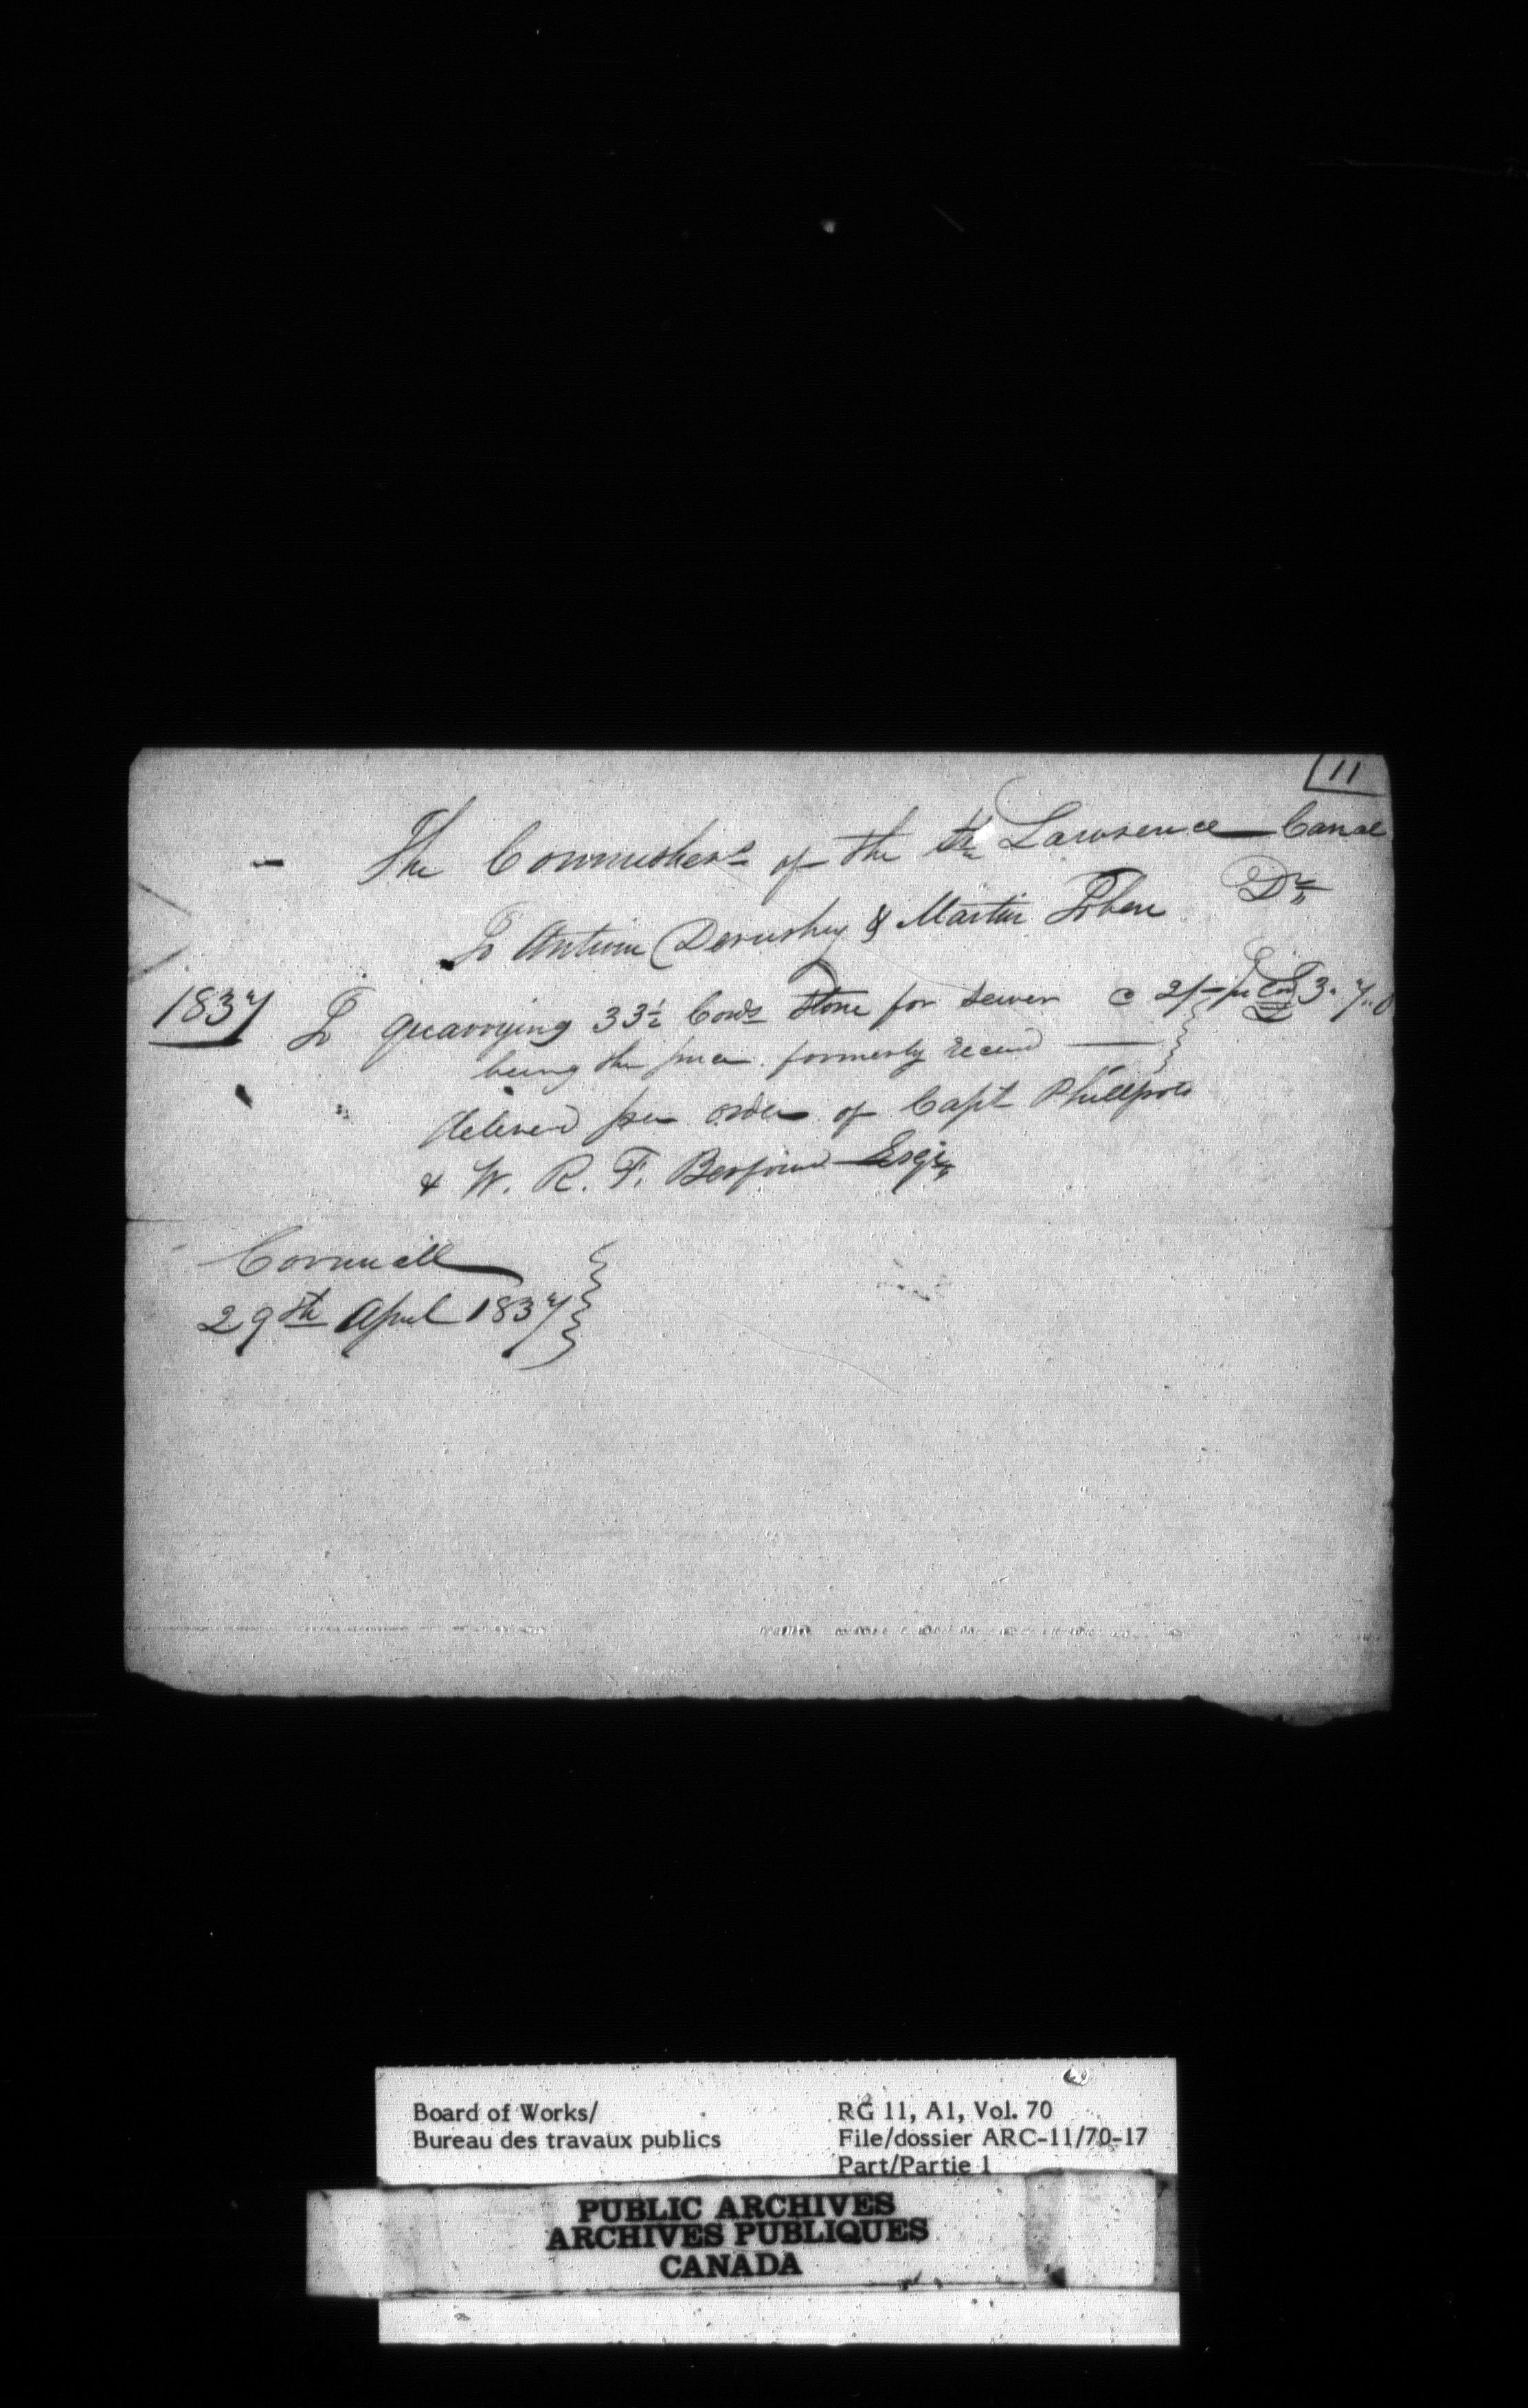 11
The Commissioners of the St Lawrence Canal
To Antwin Derushey & Martin Dr
1837 To quarrying 33½ Cords Stone for sewer @ 2/- pr Cord £3.7.0
being the price formerly received
delivered per order of Capt Phillpots
& W. R. F. Berford Esqr
Cornwall
29th April 1837
Board of Works/
Bureau des travaux publics
RG 11, A1, Vol. 70
File/dossier ARC-11/70-17
Part/Partie 1
PUBLIC ARCHIVES
ARCHIVES PUBLIQUES
CANADA